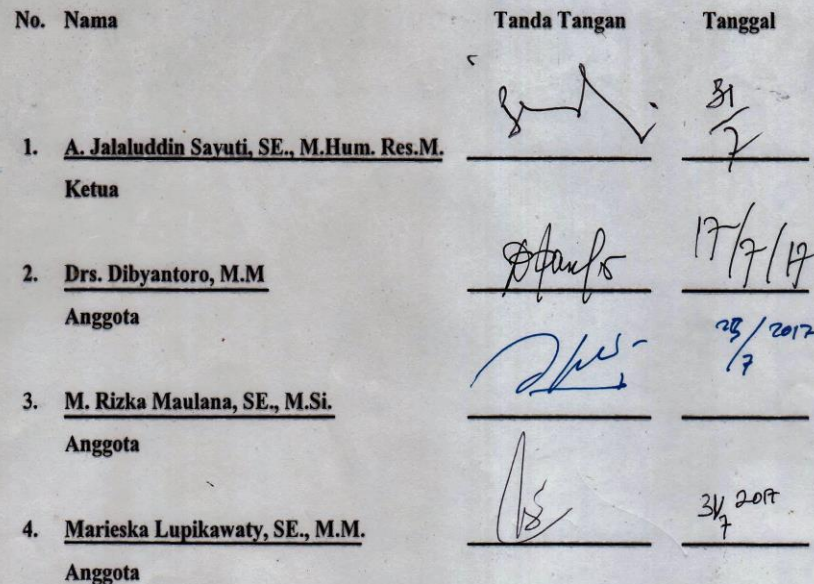 No. Nama Tanda Tangan Tanggal
31/7
1. A. Jalaluddin Sayuti, SE., M.Hum. Res.M.
Ketua
17/7/17
2. Drs. Dibyantoro, M.M
Anggota
/7 2017
3. M. Rizka Maulana, SE., M.Si.
Anggota
31/7 2017
4. Marieska Lupikawaty, SE., M.M.
Anggota